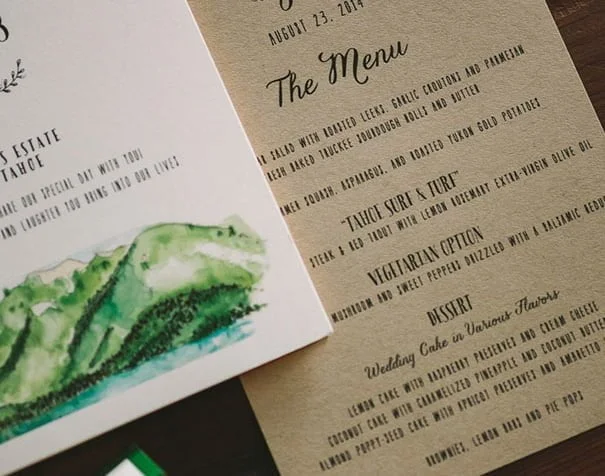 S ESTATE
TAHOE
ARE OUR SPECIAL DAY WITH YOU!
AND LAUGHTER YOU BRING INTO OUR LIVES
AUGUST 23, 2014
The Menu
SALAD WITH ROASTED LEEKS, GARLIC CROUTONS AND PARMESAN
RESH BAKED TRUCKEE SOURDOUGH ROLLS AND BUTTER
MER SQUASH, ASPARAGUS, AND ROASTED YUKON GOLD POTATOES
"TAHOE SURF & TURF"
STEAK & RED TROUT WITH LEMON ROSEMARY EXTRA-VIRGIN OLIVE OIL
VEGETARIAN OPTION
MUSHROOM AND SWEET PEPPERS DRIZZLED WITH A BALSAMIC REDU
DESSERT
Wedding Cake in Various Flavors
LEMON CAKE WITH RASPBERRY PRESERVES AND CREAM CHEESE
COCONUT CAKE WITH CARAMELIZED PINEAPPLE AND COCONUT BUTTE
ALMOND POPPY-SEED CAKE WITH APRICOT PRESERVES AND AMARETTO
BROWNIES, LEMON BARS AND PIE POPS